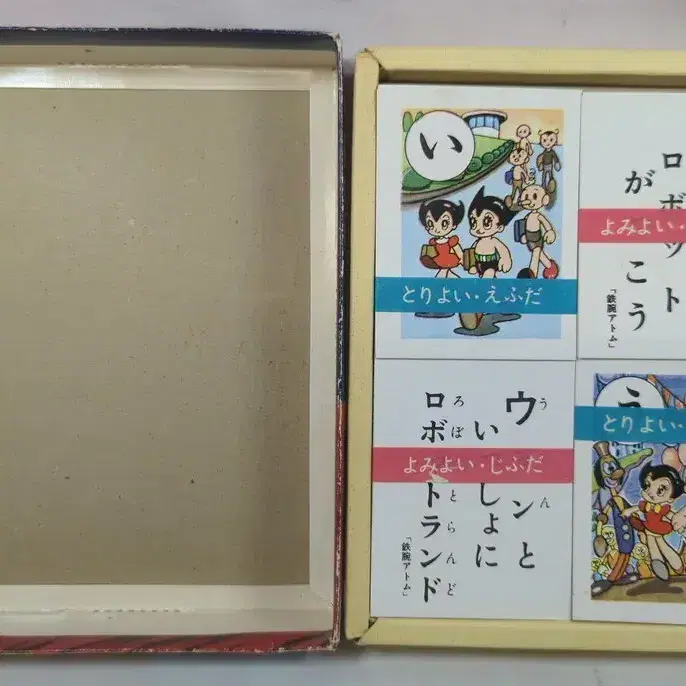 い
とりよい・えふだ
ロボット
が こう
よみよい・
「鉄腕アトム」
ウンと
うん
い しょに
ロボ トランド
ろぼ とらんど
よみよい・じふだ
「鉄腕アトム」
とりよい・